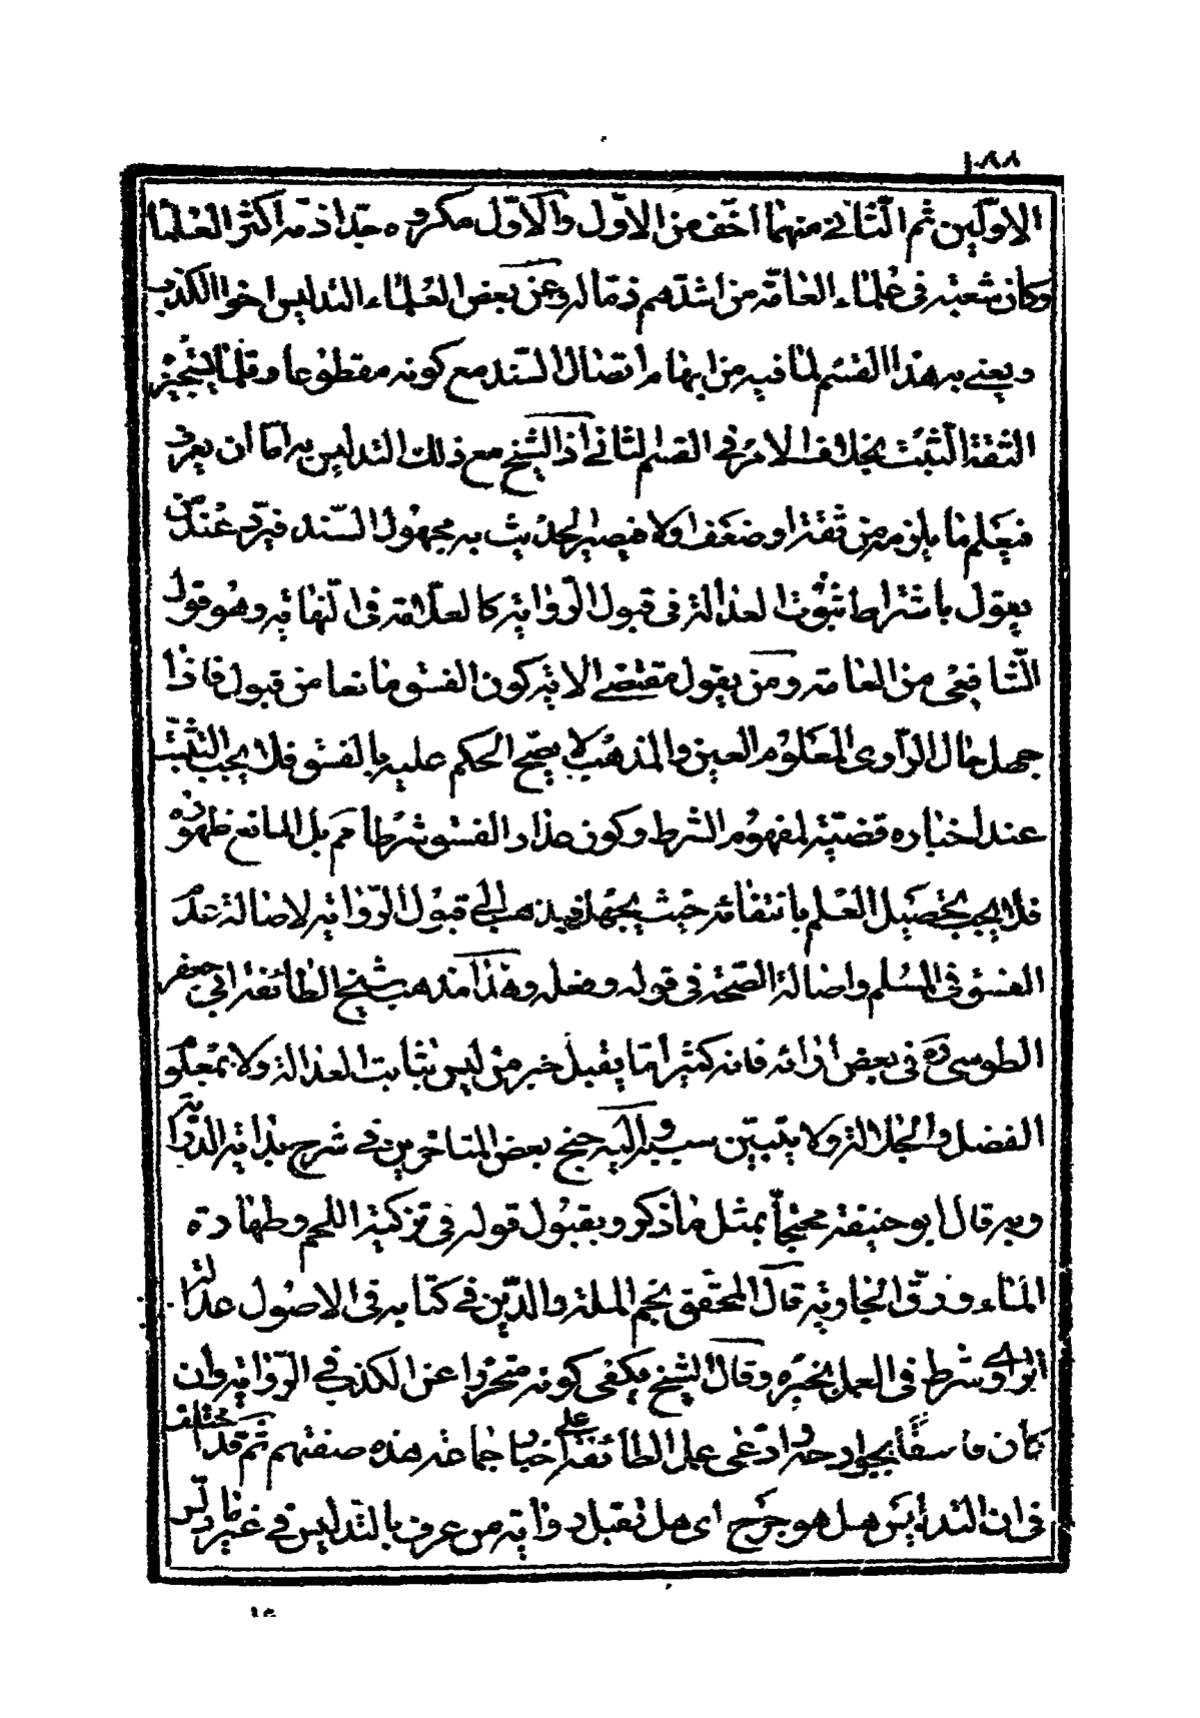 ١٨٨
الاوّلين ثم الثاني منهما اخف من الاوّل والاوّل مكروه جدا ذمه اكثر العلما
وكان شعبة في علماء العامة من اشدهم ذما له وعن بعض العلماء التدليس اخو الكذب
ويعني به هذا القسم لما فيه من ايهام اتصال السّند مع كونه مقطوعا وقلما يستجيز
الثقة الثبت بخلاف الامر في القسم الثاني اذ الشيخ مع ذلك التدليس به اما ان يعرف
فيعلم ما يلزمه من ثقة او ضعف اولا فيصير الحديث به مجهول السّند فيردّ عند من
يقول باشتراط ثبوت العدالة في قبول الرّواية كالعلّامة في النّهاية وهو قول
الشّافعي من العامة ومن يقول مقتضى الاية كون الفسق مانعا من قبول فاذا
جهل حال الرّاوي المعلوم العين والمذهب لا يصحّ الحكم عليه بالفسق فلا يجب التثبّت
عند اخباره قضيّة لمفهوم الشرط وكون المراد الفسق شرطا مم بل المانع ظهوره
فلا يجب تحصيل العلم بانتفائه حيث يجهل فيذهب الى قبول الرّواية لاصالة عدم
الفسق في المسلم واصالة الصّحة في قوله وفعله وهذا مذهب شيخ الطائفة ابي جعفر
الطوسي ره في بعض ارائه فانه كثيرا ما يقبل خبر من ليس بثابت العدالة ولا بمعلو
الفضل والجلالة ولا يتبيّن سببه واليه جنح بعض المتاخرين في شرح بداية الدّراية
وبه قال ابو حنيفة محتجّا بمثل ما ذكر وبقبول قوله في تزكية اللحم وطهارة
الماء ورقّ الجارية قال المحقق نجم الملة والدّين في كتابه في الاصول عدالة
الراوي شرط في العمل بخبره وقال الشيخ يكفى كونه متحرزا عن الكذب في الرّواية وان
كان فاسقا بجوارحه وادعى عمل الطائفة على اخبار جماعة هذه صفتهم ثم قد اختلف
في ان التدليس هل هو جرح اي هل تقبل رواية من عرف بالتدليس في غير ما دلّس